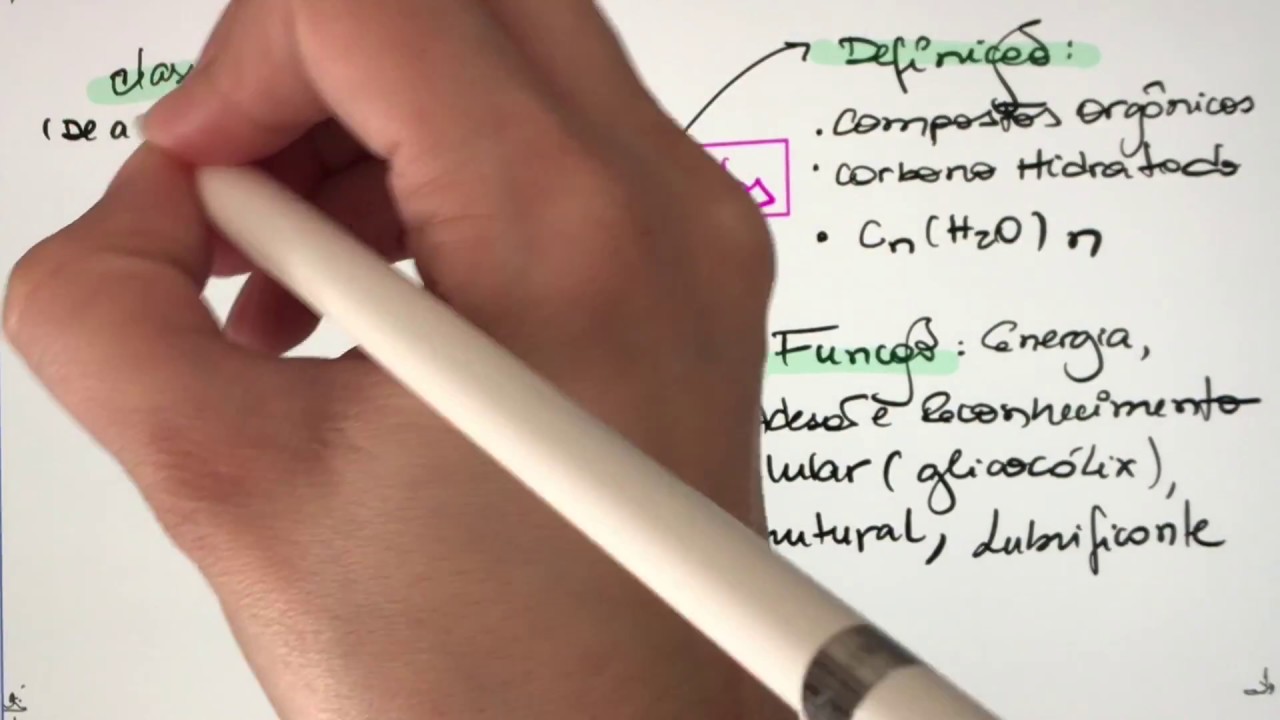 clas
(De a
Definição:
. compostos orgânicos
. carbono Hidratado
. Cn(H2O)n
Função: Energia,
adesão e Reconhecimento
lular (glicocálix),
utural, Lubrificante